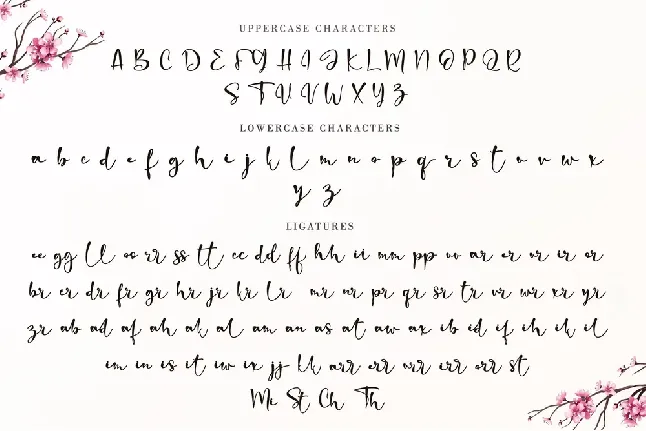 UPPERCASE CHARACTERS
A B C D E F G H I J K L M N O P Q R
S T U V W X Y Z
LOWERCASE CHARACTERS
a b c d e f g h i j k l m n o p q r s t u v w x
y z
LIGATURES
ee gg ll oo rr ss tt cc dd ff hh ii mm pp ar er or ir
br cr dr fr gr hr jr kr lr mr nr pr qr sr tr vr wr xr yr
zr ab ad af ah ak al am an as at aw ax ib id if ih ik il
im in is it iw ix jj kk arr err urr irr orr st
Mc St Ch Th